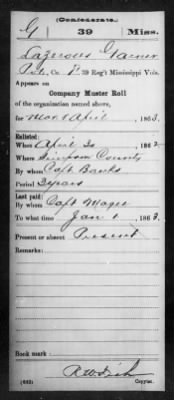 (Confederate.)
G 39 Miss.
Lazerous Garner
Pvt., Co. D, 39 Reg't Mississippi Vols.
Appears on
Company Muster Roll
of the organization named above,
for Mar & April, 1863.
Enlisted:
When April 30, 1862
Where Simpson County
By whom Capt Banks
Period 3 years
Last paid:
By whom Capt Magee
To what time Jan 1, 1863.
Present or absent Present
Remarks:
Book mark:
(642)
Copyist.